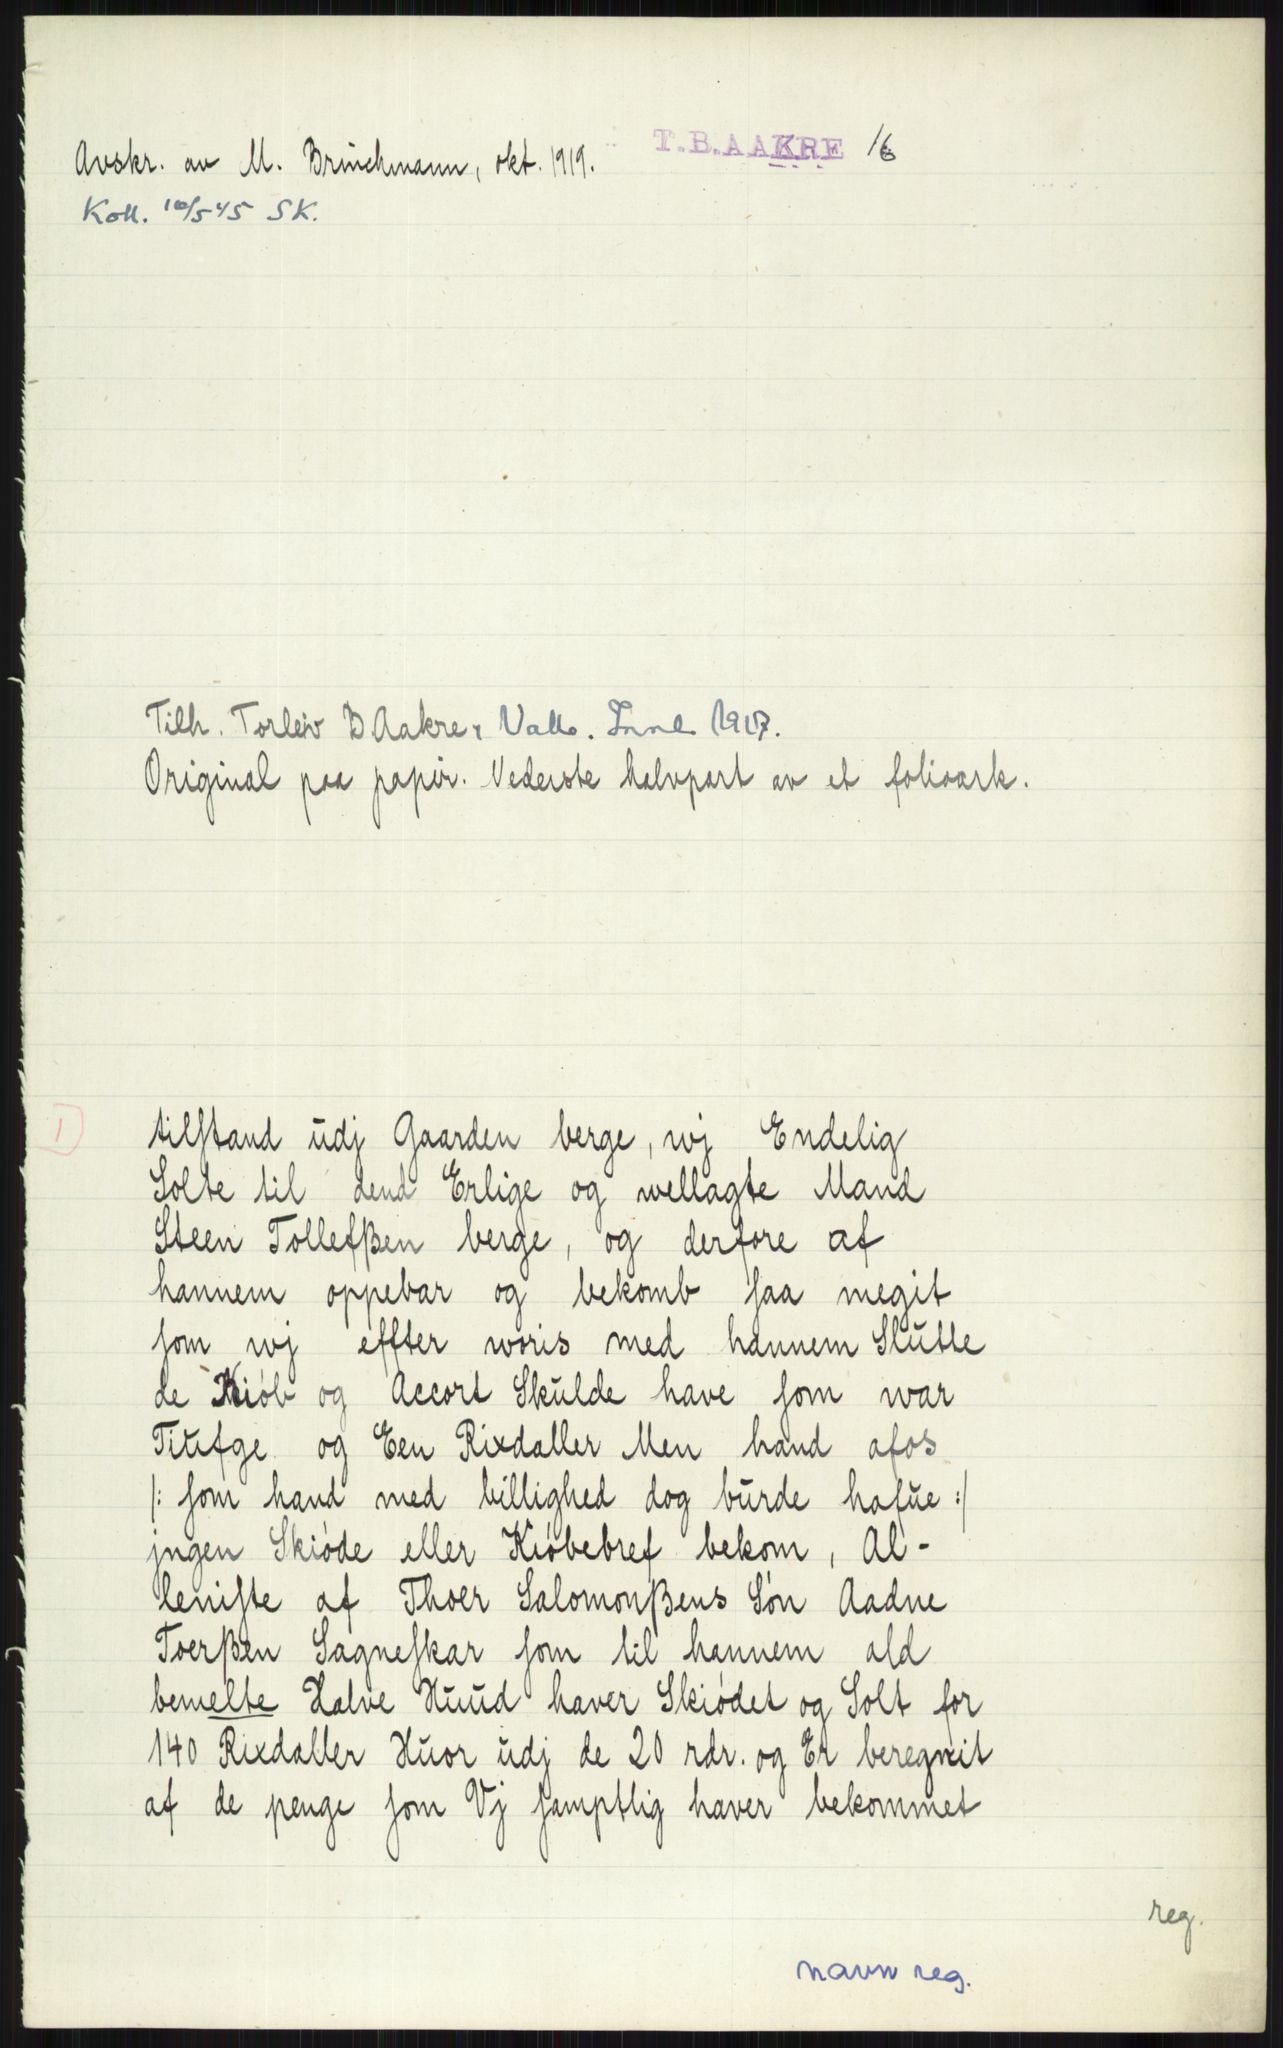 Avskr. av M. Brinchmann, okt. 1919.
T.B.AAKRE 16
Koll. 10/5 45 SK.
Tilh. Torleiv B. Aakre, Valle. Innl. 1917.
Original paa papir. Nederste halvpart av et folioark.
1)
tilstand udj Gaarden berge, wj Endelig
Solte til dend Erlige og wellagte Mand
Steen Tollefßen berge, og derfore af
hannem oppebar og bekomb saa megit
som wj effter woris med hannem Slutte
de Kiöb og Accort Skulde have som war
Tiufge og Een Rixdaller Men hand afos
/: som hand med billighed dog burde hafue :/
jngen Skiöde eller Kiöbebref bekom, Al-
leniste af Thoer Salomonßens Sön Aadne
Toerßen Sagneskar som til hannem ald
bemelte Halve Huud haver Skiödet og Solt for
140 Rixdaller Huor udj de 20 rdr. og Er beregnit
af de penge som Vj samptlig haver bekommet
reg.
navn reg.